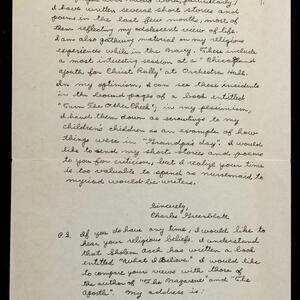 I have written several short stories and
poems in the last few months, most of
them reflecting my adolescent view of life.
I am also gathering material on my religious
experiences while in the Navy. These include
a most interesting session at a "Chicagoland
Youth for Christ Rally" at Orchestra Hall.
In my optimism, I can see these incidents
in the bound pages of a book entitled
"Turn The Other Cheek"; in my pessimism,
I hand them down as scrawlings to my
children's children as an example of how
things were in "Grandpa's day". I would
like to send my short stories and poems
to you for criticism, but I realize your time
is too valuable to spend as nursemaid to
myriad would-be writers.
Sincerely,
Charles Greenblatt
P.S. If you do have any time, I would like to
hear your religious beliefs. I understand
that Sholom Asch has written a book
entitled "What I Believe." I would like
to compare your views with those of
the author of "The Nazarene" and "The
Apostle". My address is: